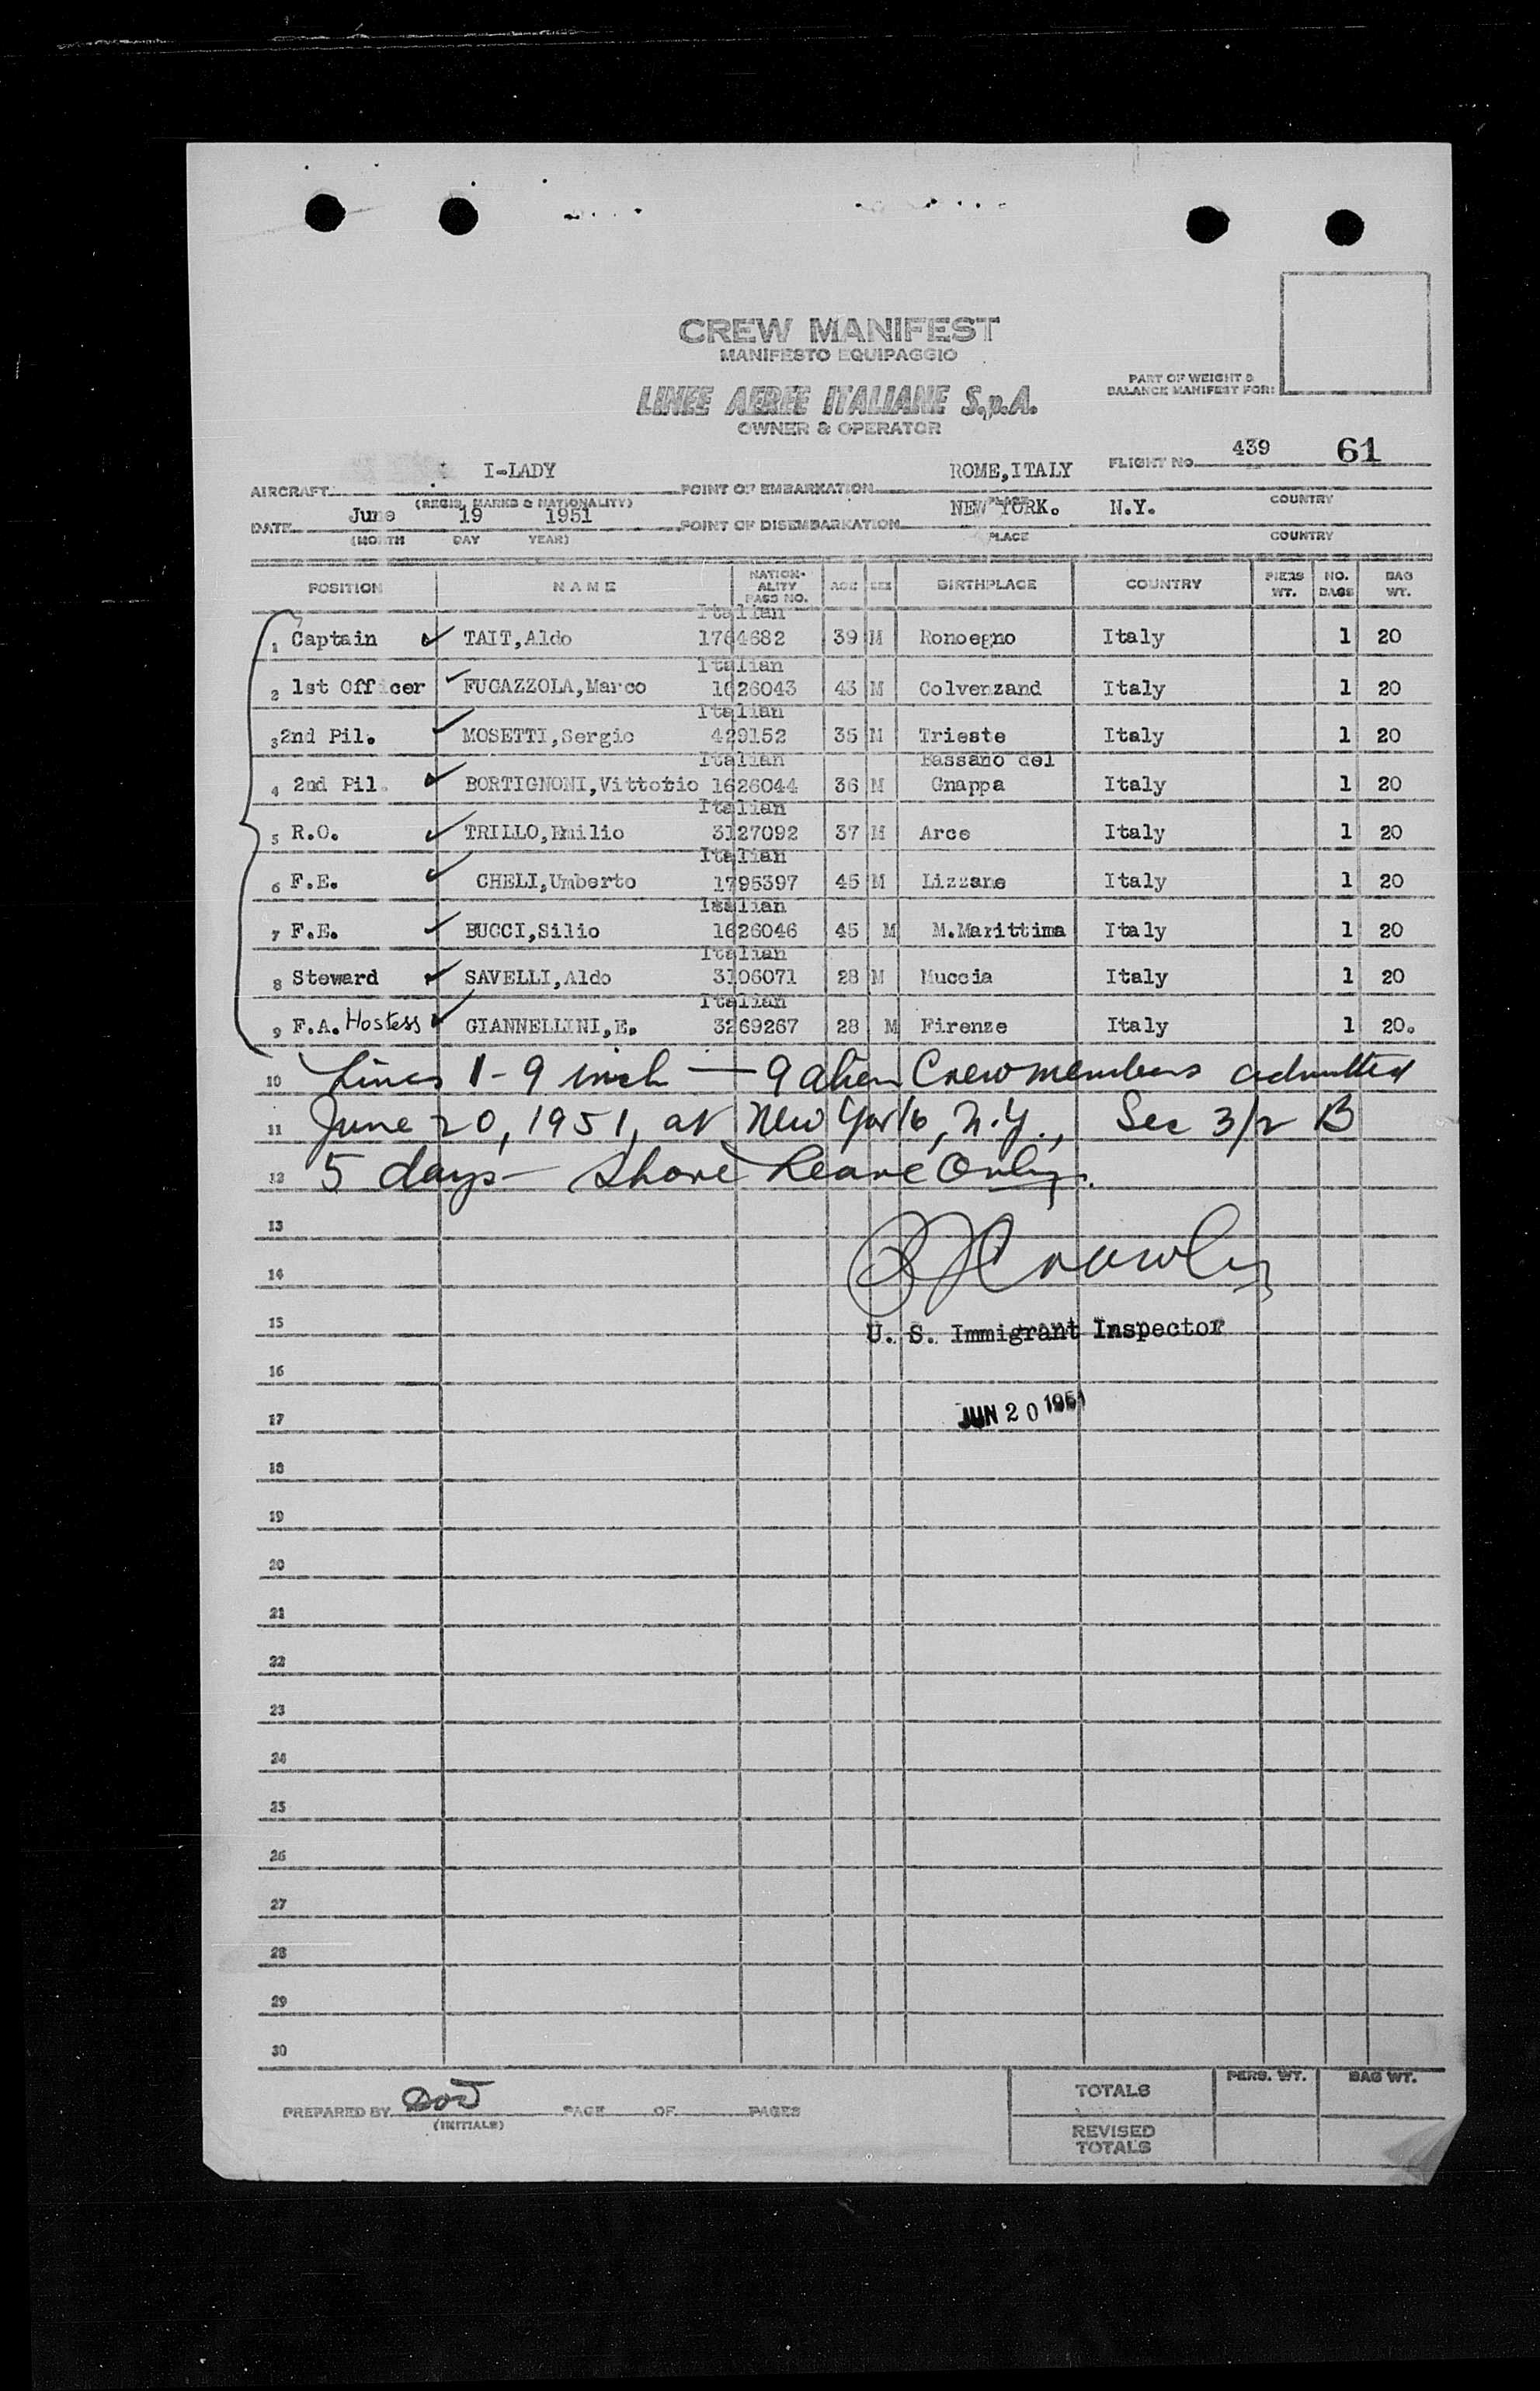 CREW MANIFEST
MANIFESTO EQUIPAGGIO
LINEE AEREE ITALIANE S.p.A.
OWNER & OPERATOR
PART OF WEIGHT &
BALANCE MANIFEST FOR:
FLIGHT NO. 439 61
AIRCRAFT I-LADY POINT OF EMBARKATION ROME,ITALY
(REGIS. MARKS & NATIONALITY) PLACE COUNTRY
DATE June 19 1951 POINT OF DISEMBARKATION NEW YORK. N.Y.
(MONTH DAY YEAR) PLACE COUNTRY
POSITION NAME NATION-ALITY PASS NO. AGE SEX BIRTHPLACE COUNTRY PIERS WT. NO. BAGS BAG WT.
Italian
1 Captain ✓ TAIT,Aldo 1764682 39 M Ronoegno Italy 1 20
Italian
2 1st Officer ✓ FUGAZZOLA,Marco 1626043 43 M Colvenzand Italy 1 20
Italian
3 2nd Pil. ✓ MOSETTI,Sergio 429152 35 M Trieste Italy 1 20
Italian Bassano del
4 2nd Pil. ✓ BORTIGNONI,Vittorio 1626044 36 M Gnappa Italy 1 20
Italian
5 R.O. ✓ TRILLO,Emilio 3127092 37 M Arce Italy 1 20
Italian
6 F.E. ✓ CHELI,Umberto 1795397 45 M Lizzane Italy 1 20
Italian
7 F.E. ✓ BUCCI,Silio 1626046 45 M M.Marittima Italy 1 20
Italian
8 Steward ✓ SAVELLI,Aldo 3106071 28 M Muccia Italy 1 20
Italian
9 F.A. Hostess ✓ GIANNELLINI,E. 3269267 28 M Firenze Italy 1 20.
10 Lines 1-9 incl — 9 alien Crewmembers admitted
11 June 20, 1951, at New York, N.Y., Sec 3/2 B
12 5 days - Shore Leave Only.
13
14
15 U. S. Immigrant Inspector
16
17 JUN 20 1951
18
19
20
21
22
23
24
25
26
27
28
29
30
TOTALS PERS. WT. BAG WT.
PREPARED BY PAGE OF PAGES
(INITIALS)
REVISED
TOTALS